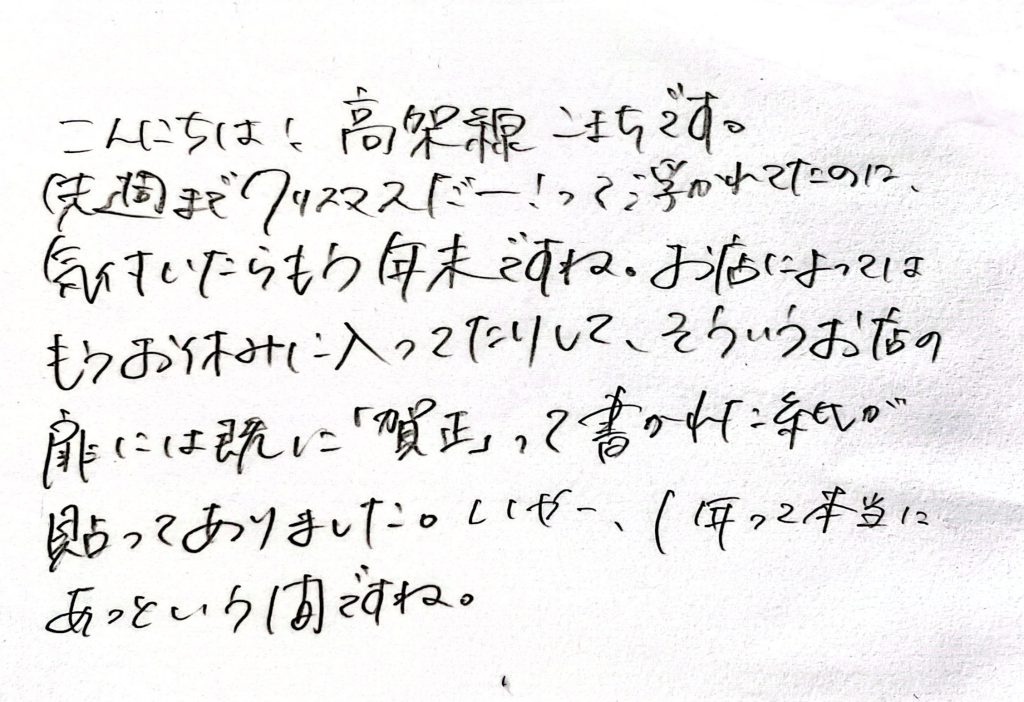 こんにちは！高架線こまちです。
先週までクリスマスだー！って浮かれてたのに、
気付いたらもう年末ですね。お店によっては
もうお休みに入ってたりして、そういうお店の
扉には既に「賀正」って書かれた紙が
貼ってありました。いやー、1年って本当に
あっという間ですね。